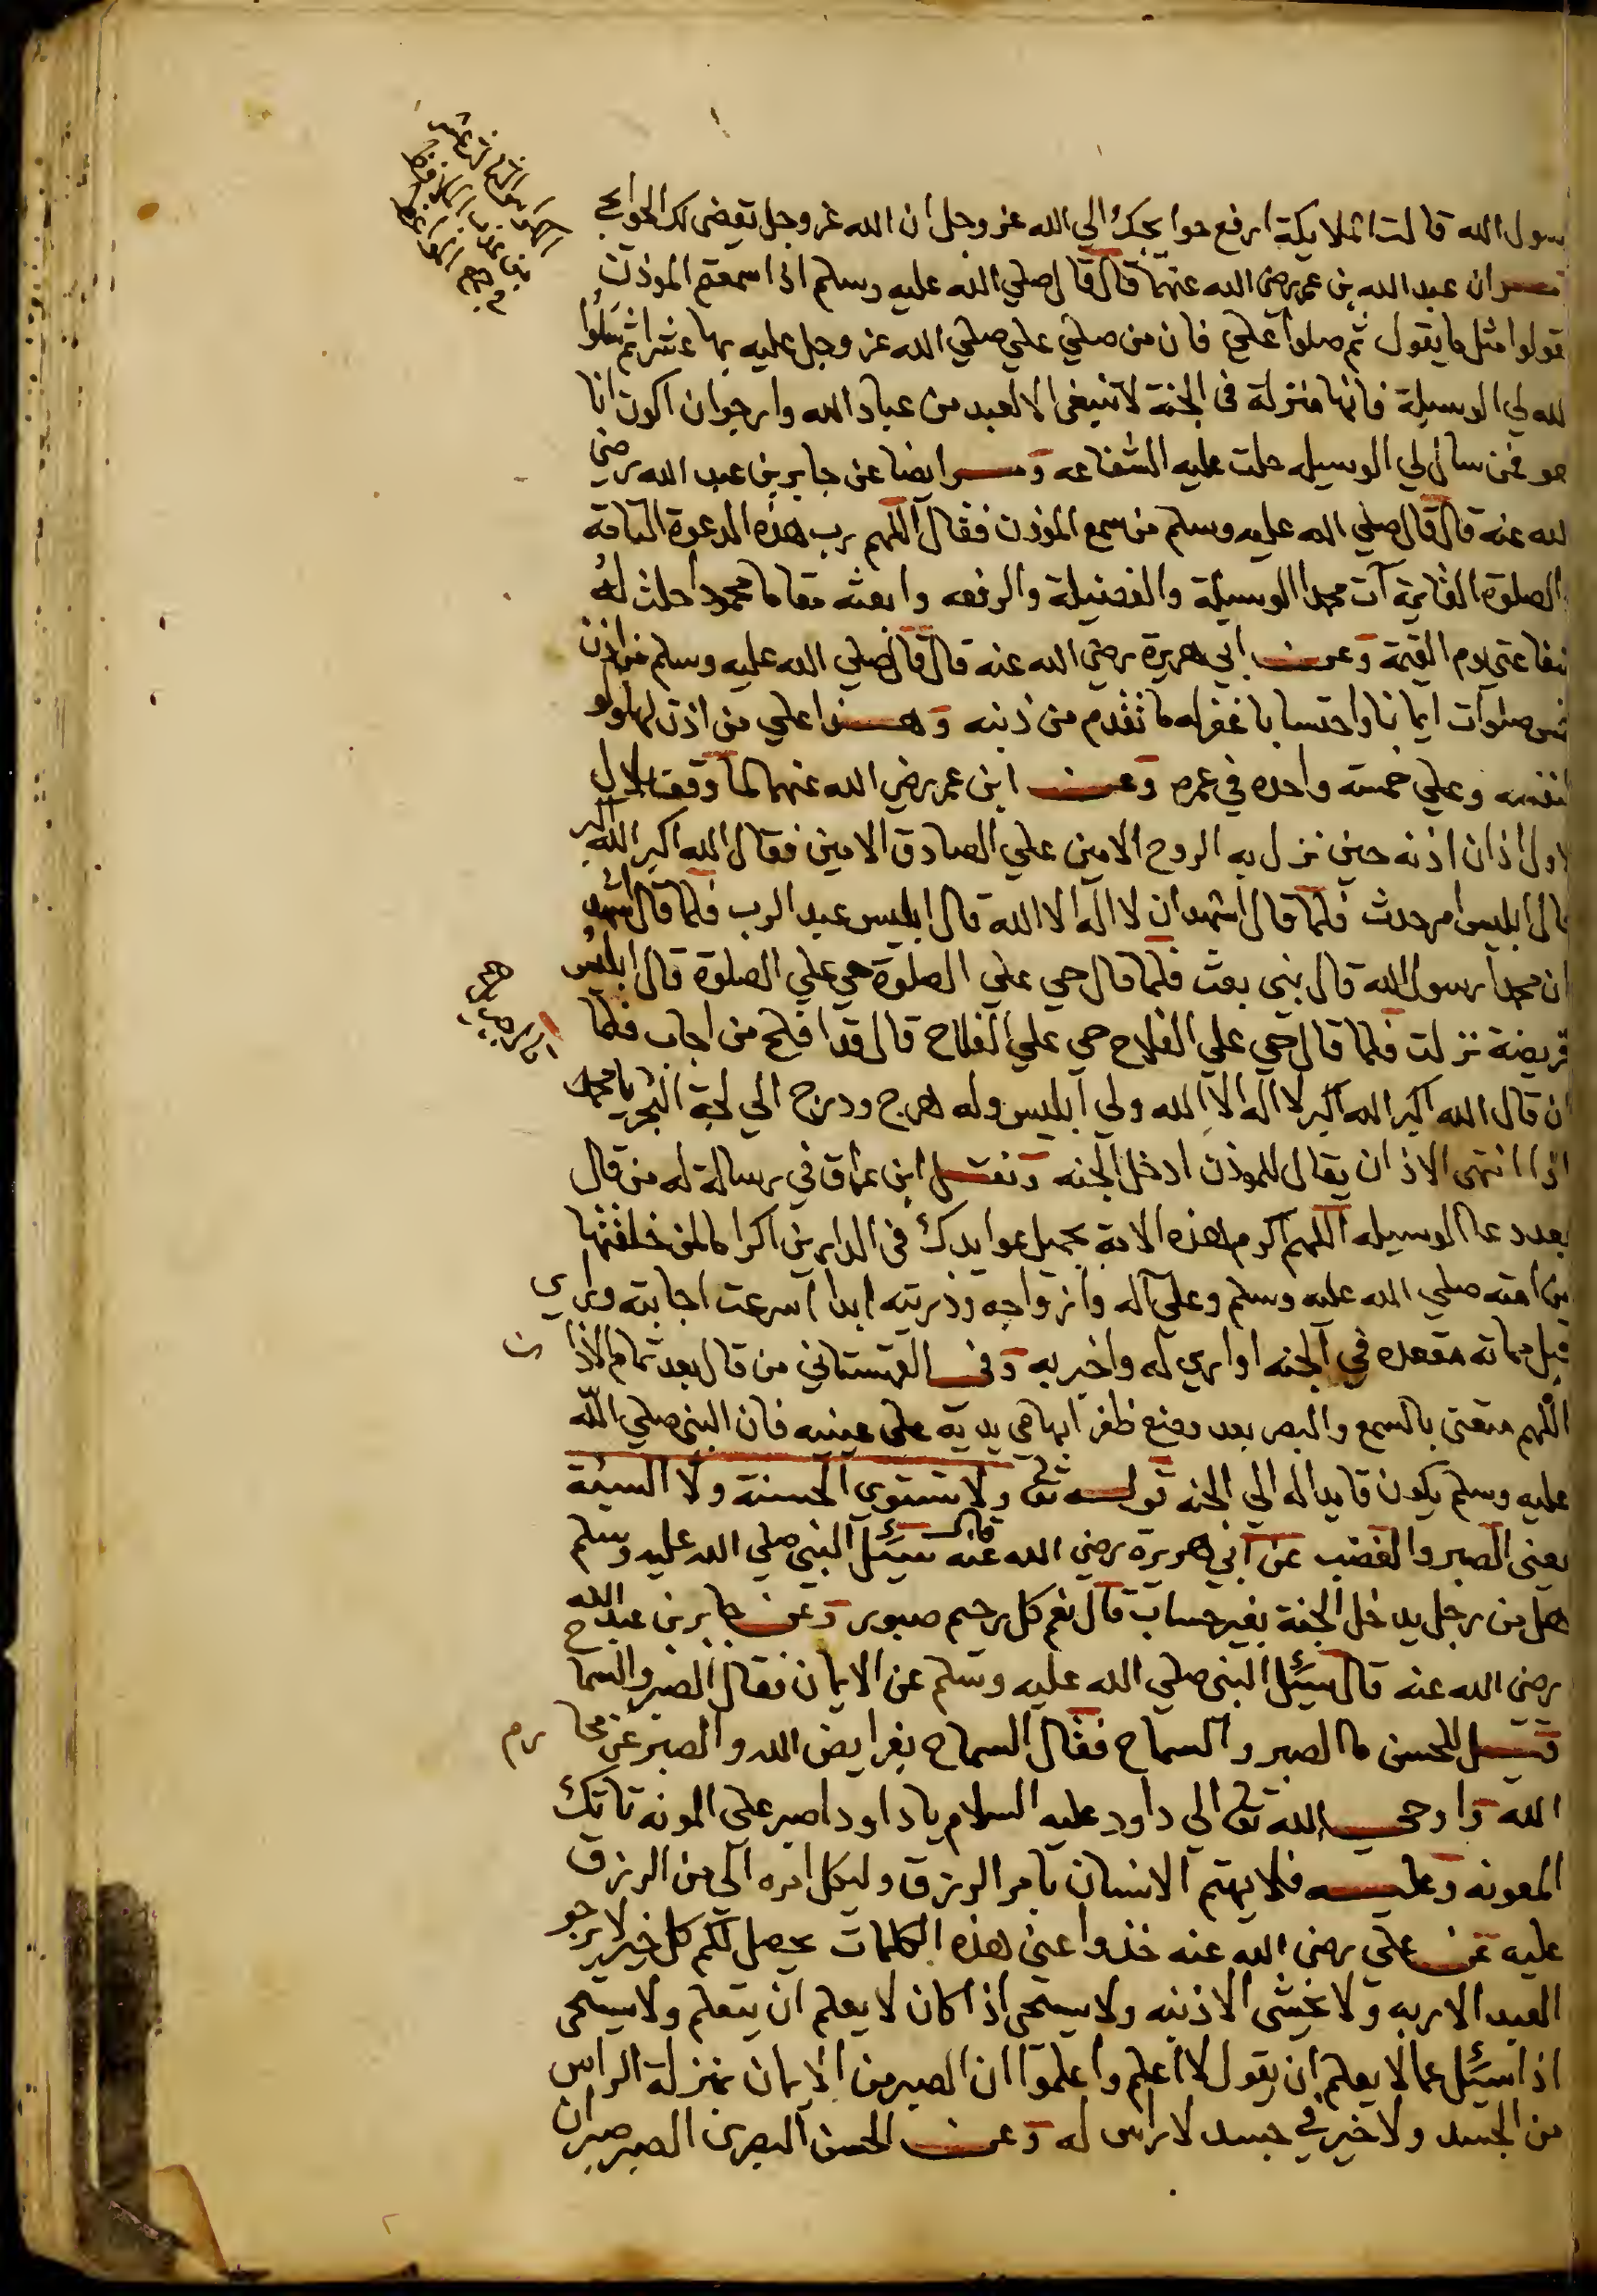 رسول الله قالت الملايكة ارفع حوايجك الي الله عز وجل ان الله عز وجل يقضى لك الحوايج
ان عبد الله بن عمر رضى الله عنهما قال قال صلي الله عليه وسلم اذا سمعتم الموذن
قولوا مثل ما يقول ثم صلوا علي فان من صلي علي صلي الله عز وجل عليه بها عشرا ثم سلوا
لله لي الوسيلة فانها منزلة فى الجنة لا تنبغى الا لعبد من عباد الله وارجوا ان اكون انا
هو فمن سال لي الوسيله حلت عليه الشفاعه ومر ايضا عن جابر بن عبد الله رضى
لله عنه قال قال صلي الله عليه وسلم من سمع الموذن فقال اللهم رب هذه الدعوة التامة
والصلوة القايمة آت محمدا الوسيلة والفضيلة والرفعه وابعثه مقاما محمودا حلت له
شفاعتى يوم القيمة وعن ابي هريرة رضي الله عنه قال قال صلي الله عليه وسلم من اذن
خمس صلوات ايمانا واحتسابا غفر له ما تقدم من ذنبه وهذا علي من اذن لها ولو
لنفسه وعلي خمسة واحده في عمره وعن ابن عمر رضي الله عنهما لما وقف بلال
لاول اذان اذنه حين نزل به الروح الامين علي الصادق الامين فقال الله اكبر الله اكبر
قال ابليس امر حدث فلما قال اشهد ان لا اله الا الله قال ابليس عبد الرب فلما قال اشهد
ان محمدا رسول الله قال بنى بعث فلما قال حي علي الصلوة حي علي الصلوة قال ابليس
فريضة نزلت فلما قال حي علي الفلاح حي علي الفلاح قال قد افلح من اجاب فلما
ان قال الله اكبر الله اكبر لا اله الا الله ولي ابليس وله هرج ودرج الي لجة البحر يا محمد
اذا انتهى الاذان يقال للموذن ادخل الجنه ونقل ابن عراق في رسالة له من قال
بعد دعا الوسيله اللهم اكرم هذه الامة بجميل عوايدك فى الدارين اكراما لمن خلفتها
من امته صلي الله عليه وسلم وعلي آله وازواجه وذريته ابدا اسرعت اجابته وراي
قبل مماته مقعده في الجنه او اري له واخبر به وفى القهستاني من قال بعد تمام الاذان
اللهم متعنى بالسمع والبصر بعد وضع ظفر ابهامي يديه على عينيه فان النبى صلي الله
عليه وسلم يكون قايدا له الي الجنه قوله تعالى ولا تستوي الحسنة ولا السيئة
يعنى الصبر والغضب عن ابي هريرة رضي الله عنه قال سيئل النبى صلي الله عليه وسلم
هل من رجل يدخل الجنة بغير حساب قال نعم كل رحيم صبور وعن جابر بن عبد الله
رضي الله عنه قال سيئل النبى صلي الله عليه وسلم عن الايمان فقال الصبر والسماح
قيل للحسن ما الصبر والسماح فقال السماح بفرايض الله والصبر عن محارم
الله واوحى الله تعالى الي داود عليه السلام يا داود اصبر على المونه تاتك
المعونه وعليه فلا يهتم الانسان بامر الرزق وليكل امره الي من الرزق
عليه عن علي رضى الله عنه خذوا عنى هذه الكلمات يحصل لكم كل خير لا يرجو
العبد الا ربه ولا يخشى الا ذنبه ولا يستحى اذا كان لا يعلم ان يتعلم ولا يستحى
اذا سيئل عما لا يعلم ان يقول لا اعلم واعلموا ان الصبر من الايمان بمنزلة الراس
من الجسد ولا خير في جسد لا راس له وعن الحسن البصرى الصبر صبران